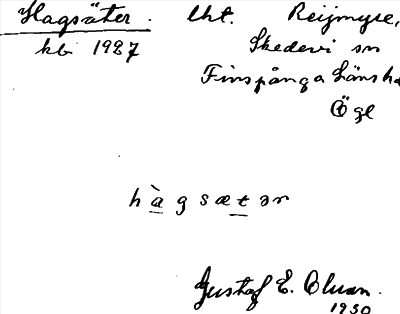 Hagsäter. lht. Reijmyre,
kb 1927 Skedevi sn
Finspånga Länshd
Ögl
hàgsætər
Gustaf E. Olson.
1930